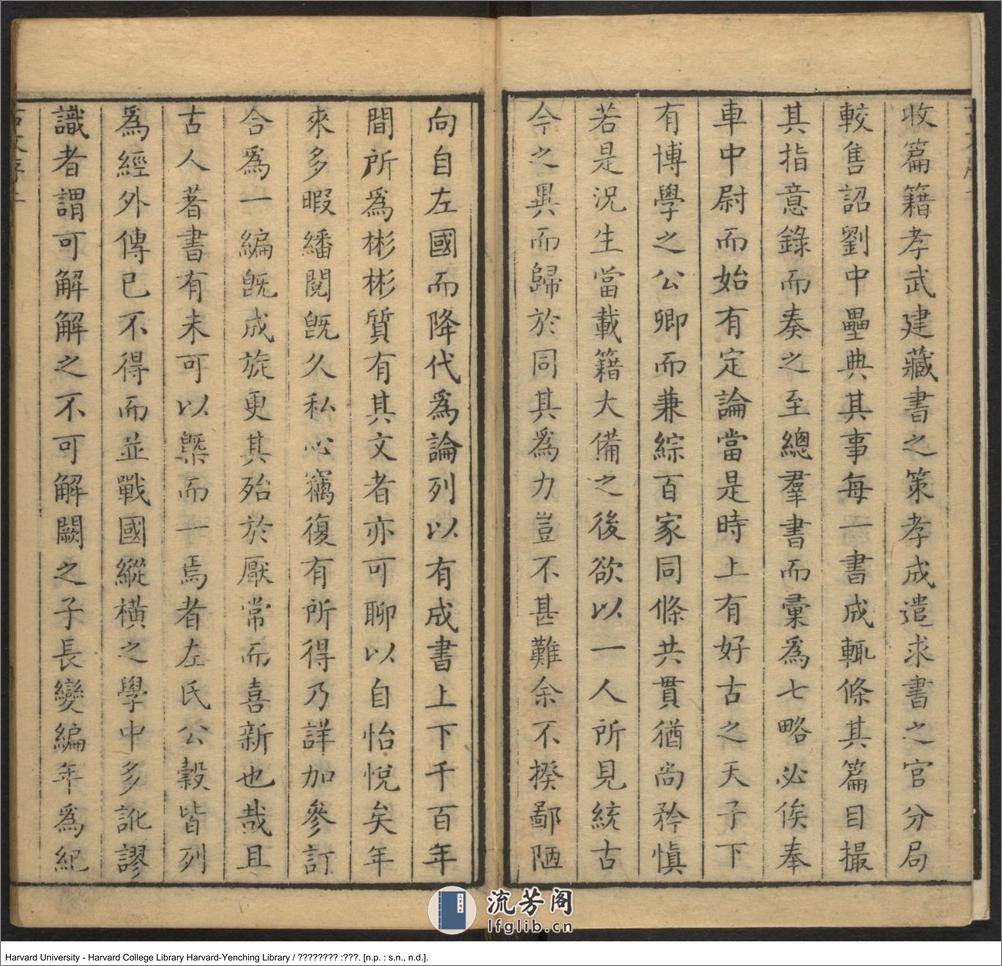 收篇籍孝武建藏書之策孝成遣求書之官分局
較售詔劉中壘典其事每一書成輒條其篇目撮
其指意錄而奏之至總羣書而彙爲七略必俟奉
車中尉而始有定論當是時上有好古之天子下
有博學之公卿而兼綜百家同條共貫猶尚矜慎
若是況生當載籍大備之後欲以一人所見統古
今之異而歸於同其爲力豈不甚難余不揆鄙陋
向自左國而降代爲論列以有成書上下千百年
間所爲彬彬質有其文者亦可聊以自怡悅矣年
來多暇繙閱既久私心竊復有所得乃詳加參訂
合爲一編既成旋更其殆於厭常而喜新也哉且
古人著書有未可以槩而一焉者左氏公穀皆列
爲經外傳已不得而並戰國縱橫之學中多訛謬
識者謂可解解之不可解闕之子長變編年爲紀
流芳阁
lfglib.cn
Harvard University - Harvard College Library Harvard-Yenching Library / ???????? :???. [n.p. : s.n., n.d.].